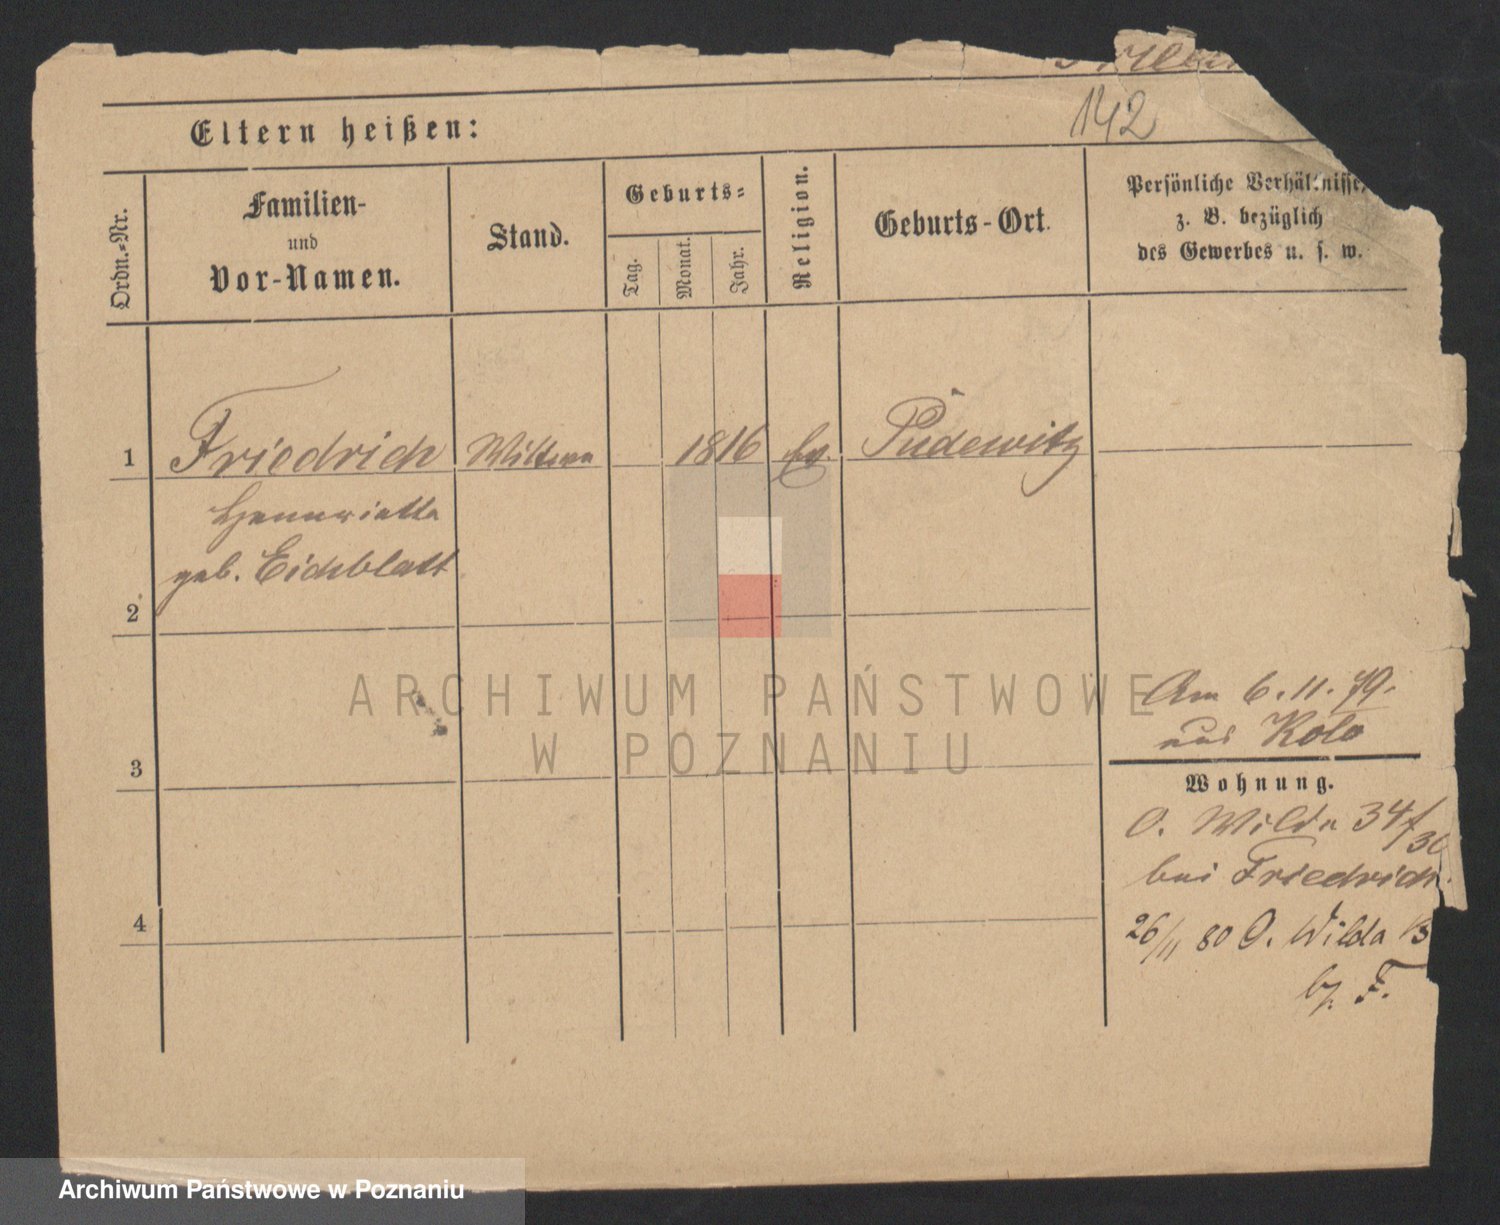 142
Eltern heißen:
Ordn.-Nr.
Familien-
und
Vor-Namen.
Stand.
Geburts-
Tag.
Monat.
Jahr.
Religion.
Geburts-Ort.
Persönliche Verhältnisse,
z. B. bezüglich
des Gewerbes u. s. w.
1 Friedrich Wittwe 1816 Ev. Pudewitz
Hennriette
geb. Eichblatt
2
ARCHIWUM PAŃSTWOWE
W POZNANIU
Am 6.11.79.
aus Kolo
3
Wohnung.
O. Wilda 34/30
bei Friedrich
4
26/11 80 O. Wilda 13
b. F.
Archiwum Państwowe w Poznaniu